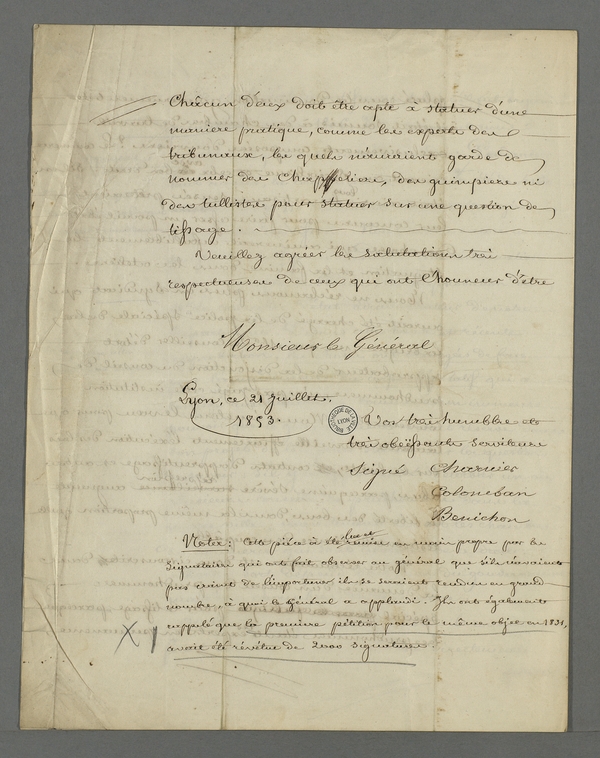 Chacun d'eux doit être apte à statuer d'une
maniere pratique, comme les experts des
tribunaux, les quels n'auraient garde de
nommer des Chapeliers, des guimpiers ni
des tullistes pour statuer sur une question de
tissage.
Veuillez agréer les salutations très
respectueuses de ceux qui ont l'honneur d'être
Monsieur le Général
Lyon, ce 21 Juillet.
1853.
BIBLIOTHEQUE DE LA VILLE LYON
Vos très humbles et
très obéissants serviteurs
Signé Charnier
Colomban
Benichon
Nota: Cette pièce à été lue et remise en main propre par les
signataires qui ont fait observer au général que s'ils n'avaient
pas craint de l'importuner ils se seraient rendus en grand
nombre, à quoi le Général a applaudi. Ils ont également
rappelé que la première pétition pour le même objet en 1831,
avait été révêtue de 2000 signatures.
X